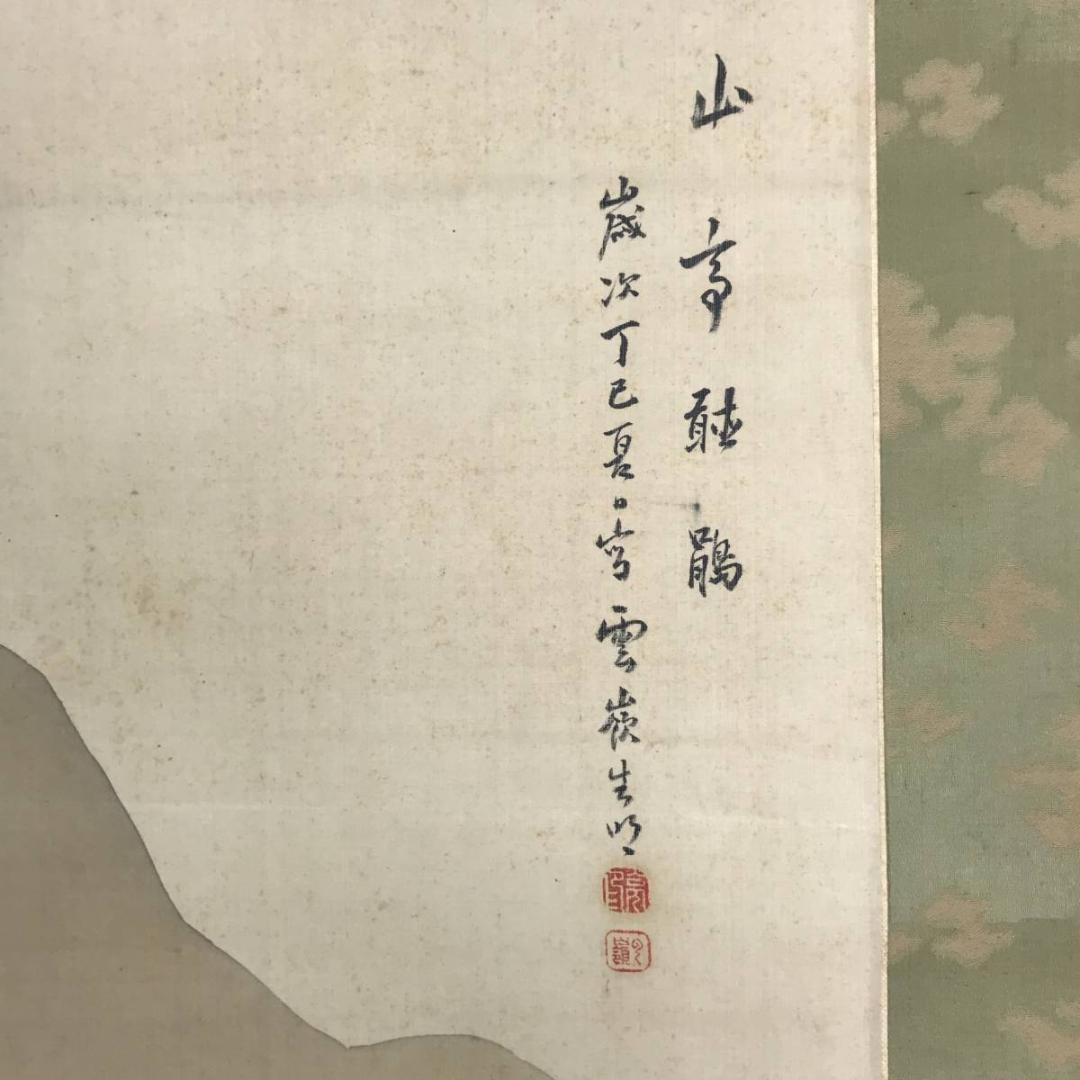 山亭聴鵑
歳次丁巳夏日写雲嶺生